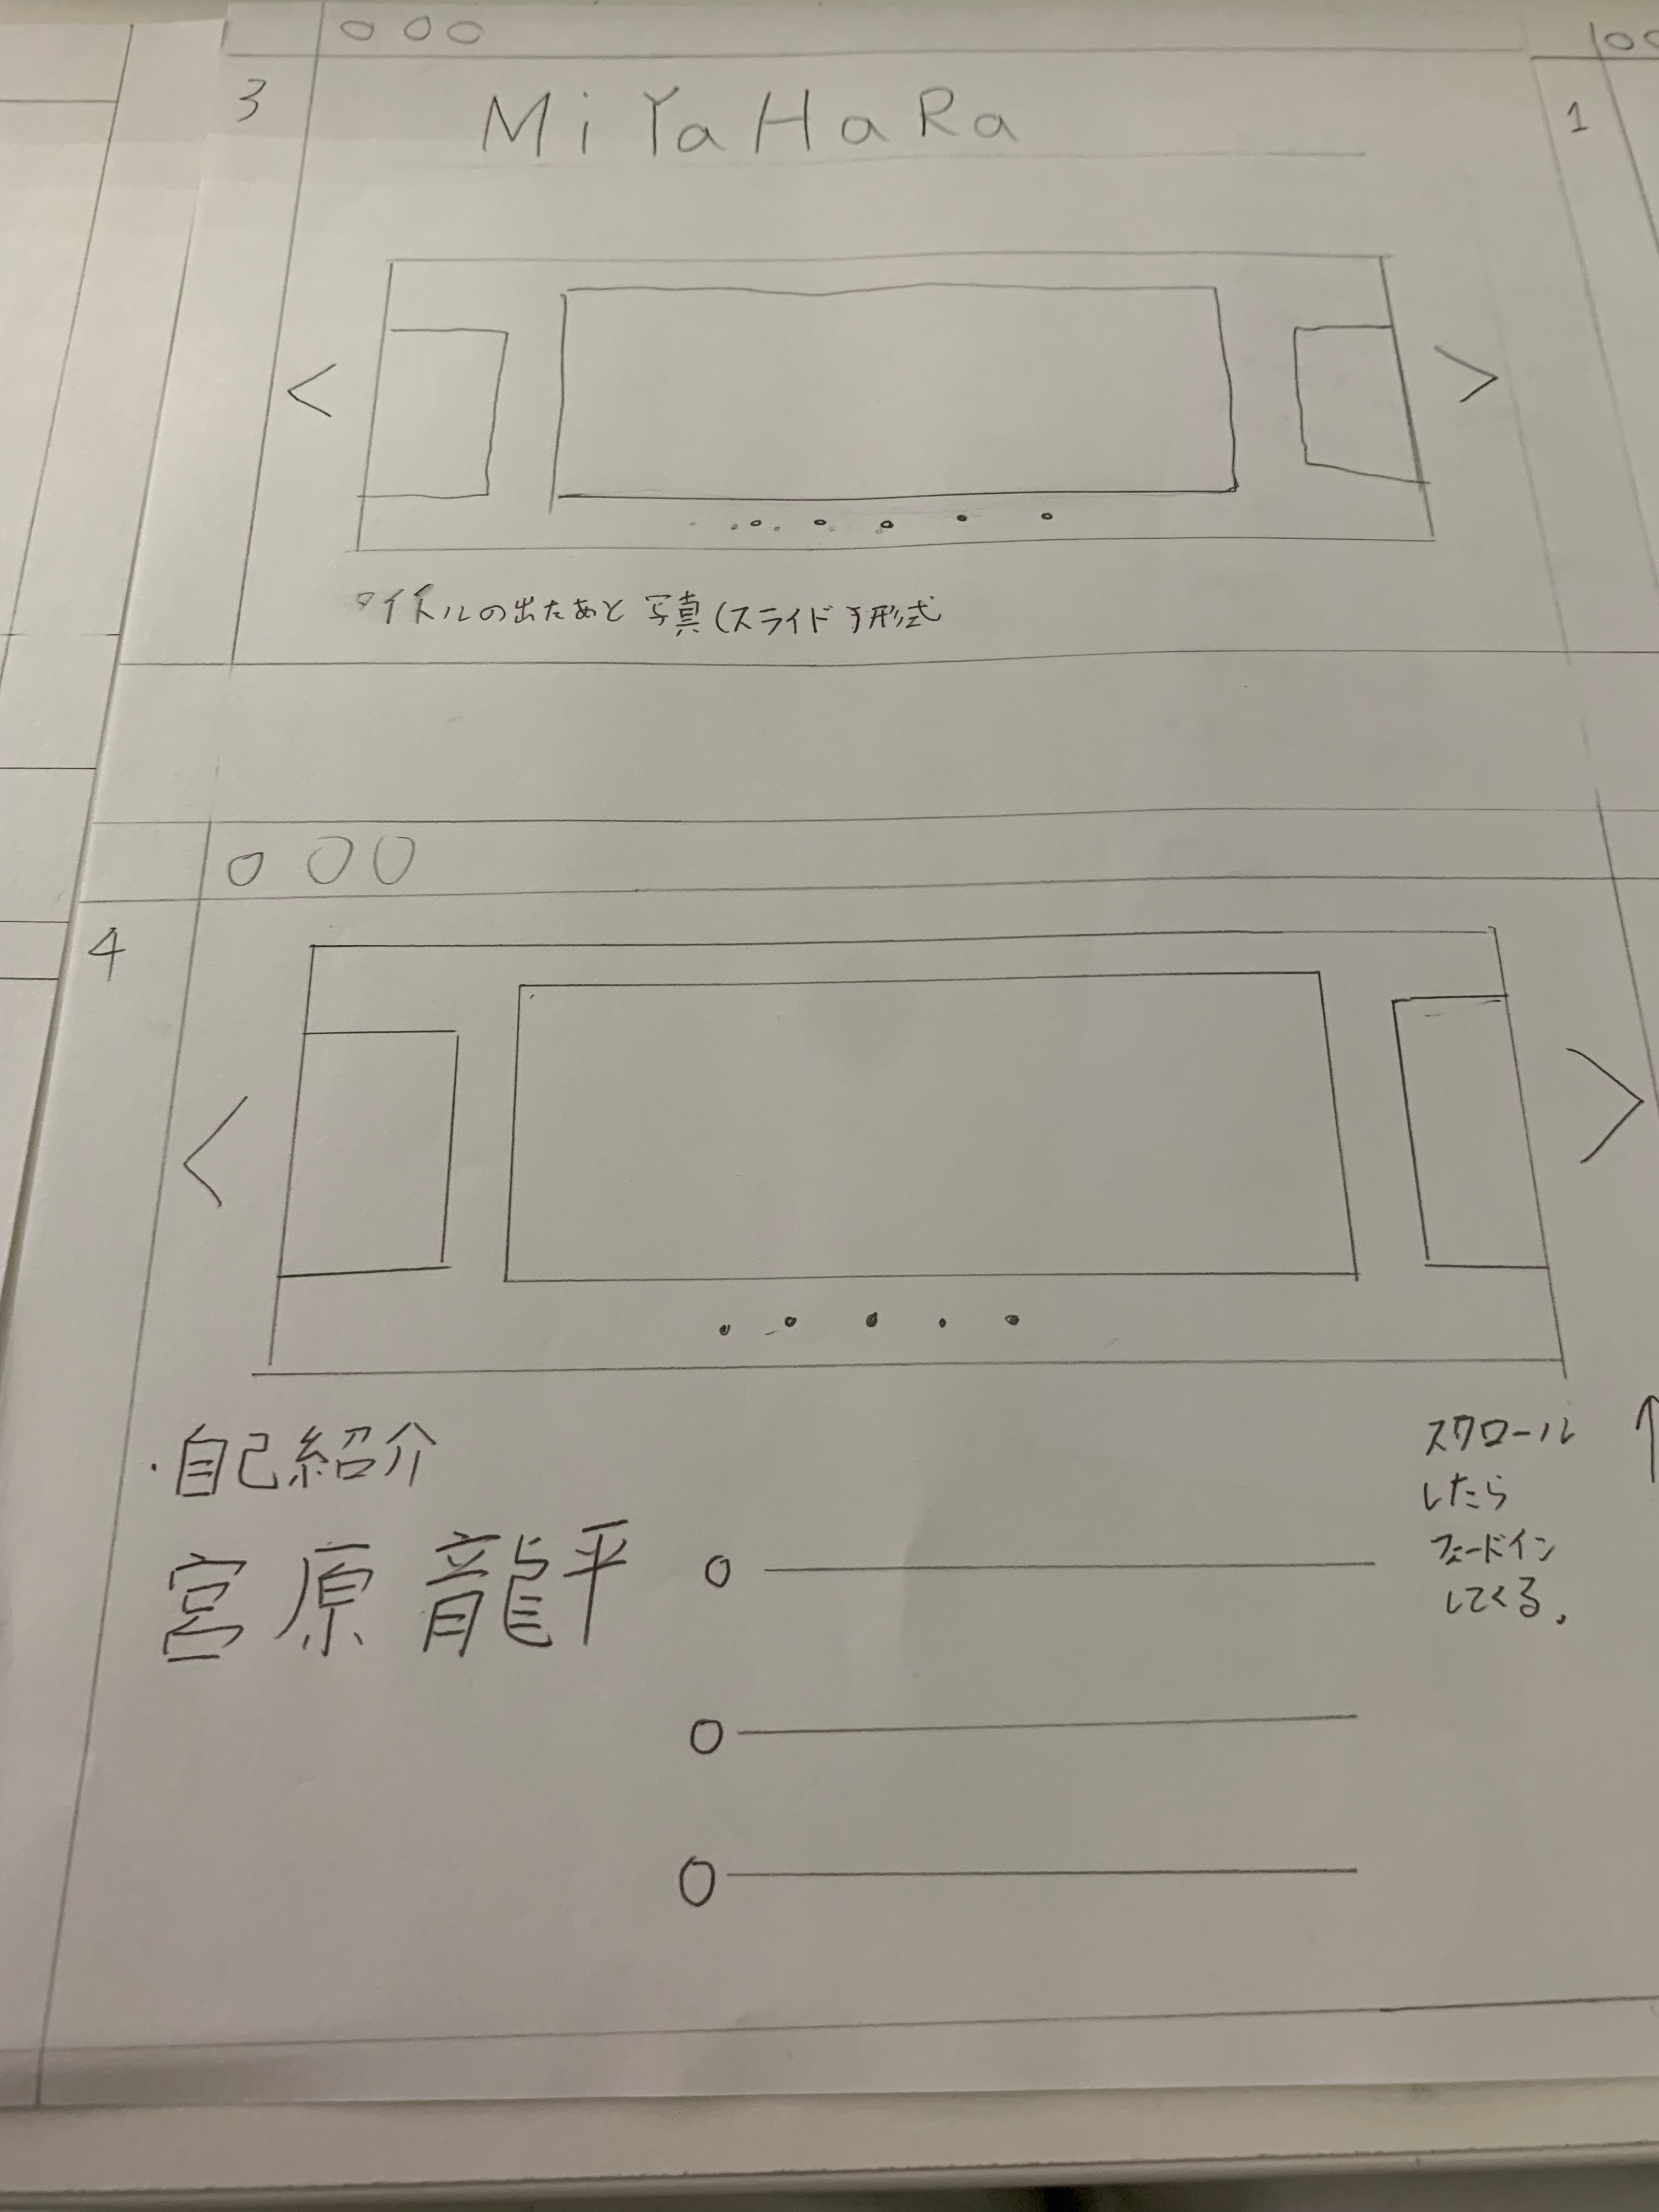 3
MiYaHaRa
1
<
>
タイトルの出たあと 写真(スライド 形式
4
<
>
・自己紹介
宮原 龍平
スクロール
したら
フェードイン
してくる。